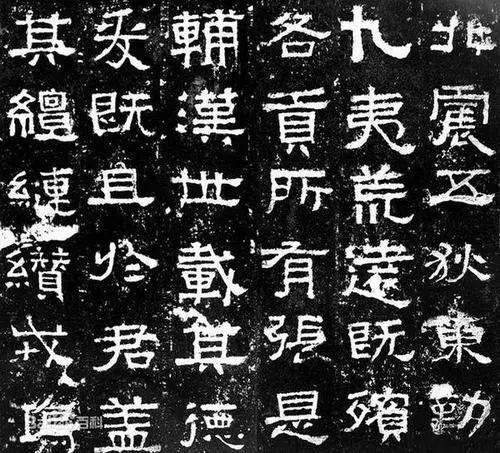 北震五狄東勤
九夷荒遠既殯
各貢所有張是
輔漢世載其德
爰既且於君盖
其繵縺纘戎鴻
百科